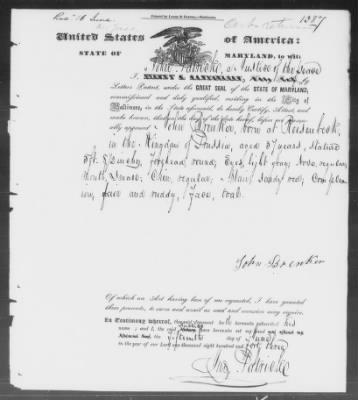 Printed by Lucas & Deaver,—Baltimore.
1387
United States of America:
STATE OF MARYLAND, to wit:
a Justice of the Peace
Letters Patent, under the GREAT SEAL of the STATE of MARYLAND,
commissioned and duly qualified, residing in the City of
Baltimore, in the State aforesaid, do hereby Certify, Attest, and
make known, that on the day of the date hereof, before me personally
appeared John Brenker, born at
in the Kingdom of Prussia, aged 37 years, stature
5 ft. 8 3/4 inches, forehead, round; Eyes, light gray; Nose, regular;
Mouth, ; Chin, regular; Hair, sandy red; Complexion,
fair and ruddy, Face, oval.
John Brenker
Of which an Act having been of me requested, I have granted
these presents, to serve and avail as need and occasion may require.
In Testimony whereof, the said deponent hath hereunto subscribed his
name; and I, the said Justice have hereunto set my hand
the fifteenth day of June
in the year of our Lord one thousand eight hundred and forty three